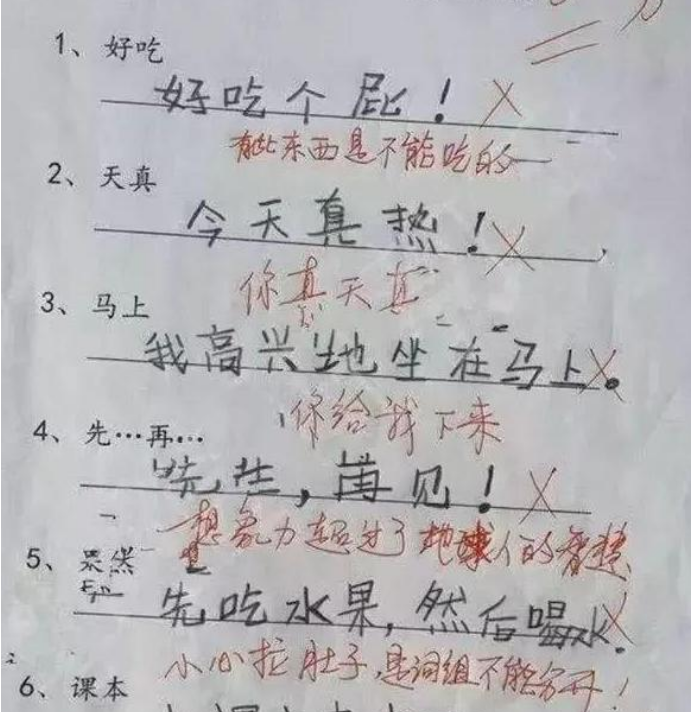 1、好吃
好吃个屁！
有些东西是不能吃的
2、天真
今天真热！
你真天真
3、马上
我高兴地坐在马上。
你给我下来
4、先…再…
先生，再见！
想象力超过了地球人的智慧
5、果然
先吃水果，然后喝水。
小心拉肚子，是词组不能分开！
6、课本